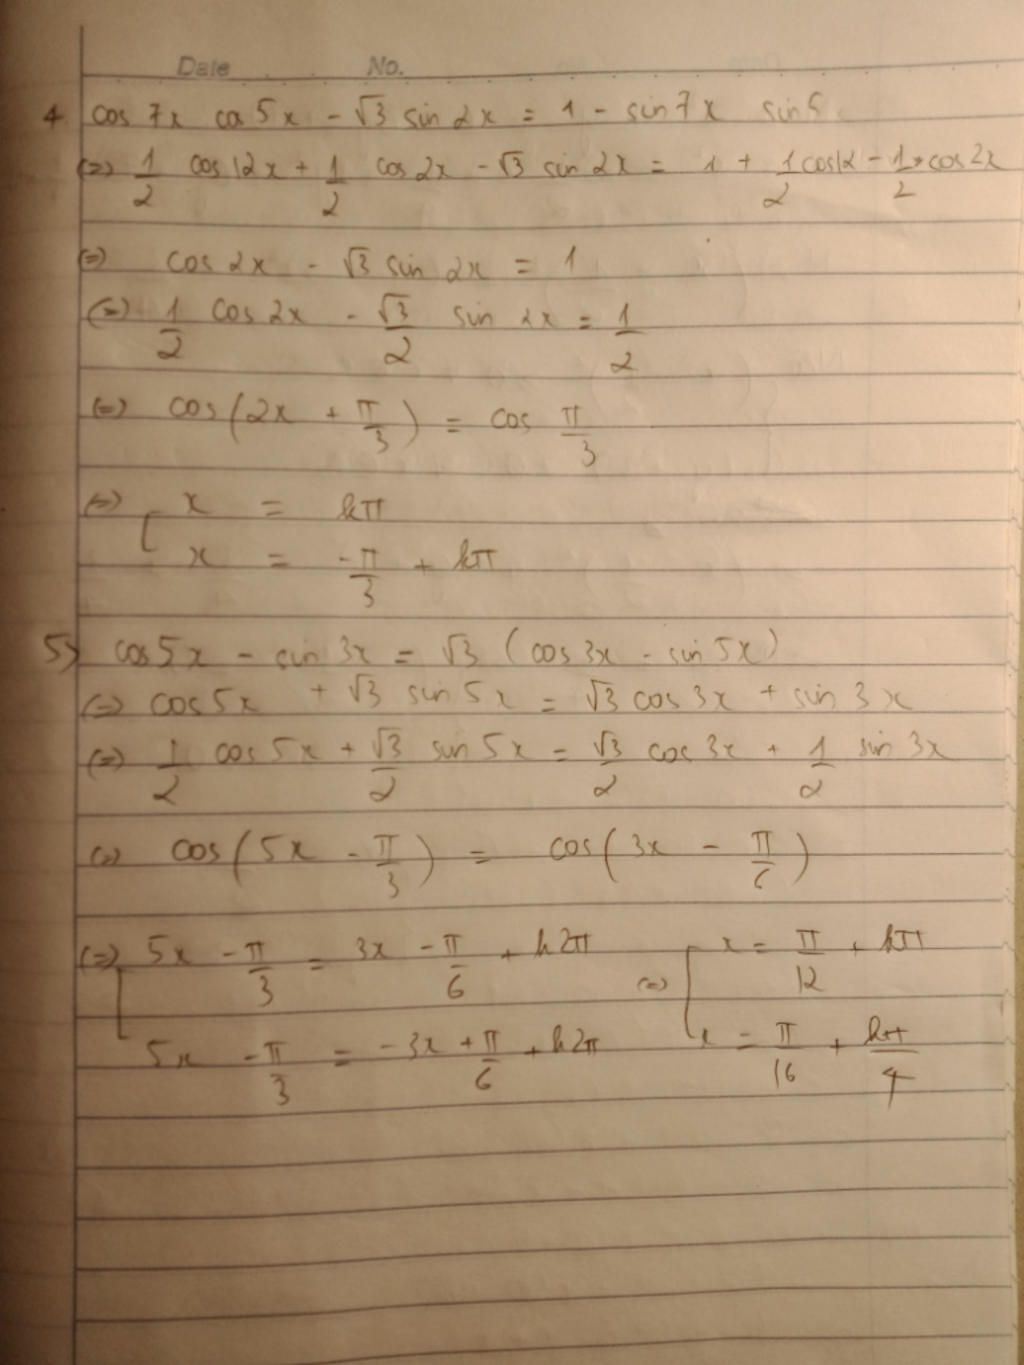 Date No.
4 cos 7x cos 5x - √3 sin 2x = 1 - sin 7x sin 5
(=) 1/2 cos 12x + 1/2 cos 2x - √3 sin 2x = 1 + 1/2 cos 12 - 1/2 cos 2x
(=) cos 2x - √3 sin 2x = 1
(=) 1/2 cos 2x - √3/2 sin 2x = 1/2
(=) cos(2x + π/3) = cos π/3
(=) [ x = kπ
x = -π/3 + kπ
5) cos 5x - sin 3x = √3 (cos 3x - sin 5x)
(=) cos 5x + √3 sin 5x = √3 cos 3x + sin 3x
(=) 1/2 cos 5x + √3/2 sin 5x = √3/2 cos 3x + 1/2 sin 3x
(=) cos(5x - π/3) = cos(3x - π/6)
(=) [ 5x - π/3 = 3x - π/6 + k2π (=) [ x = π/12 + kπ
5x - π/3 = -3x + π/6 + k2π x = π/16 + kπ/4